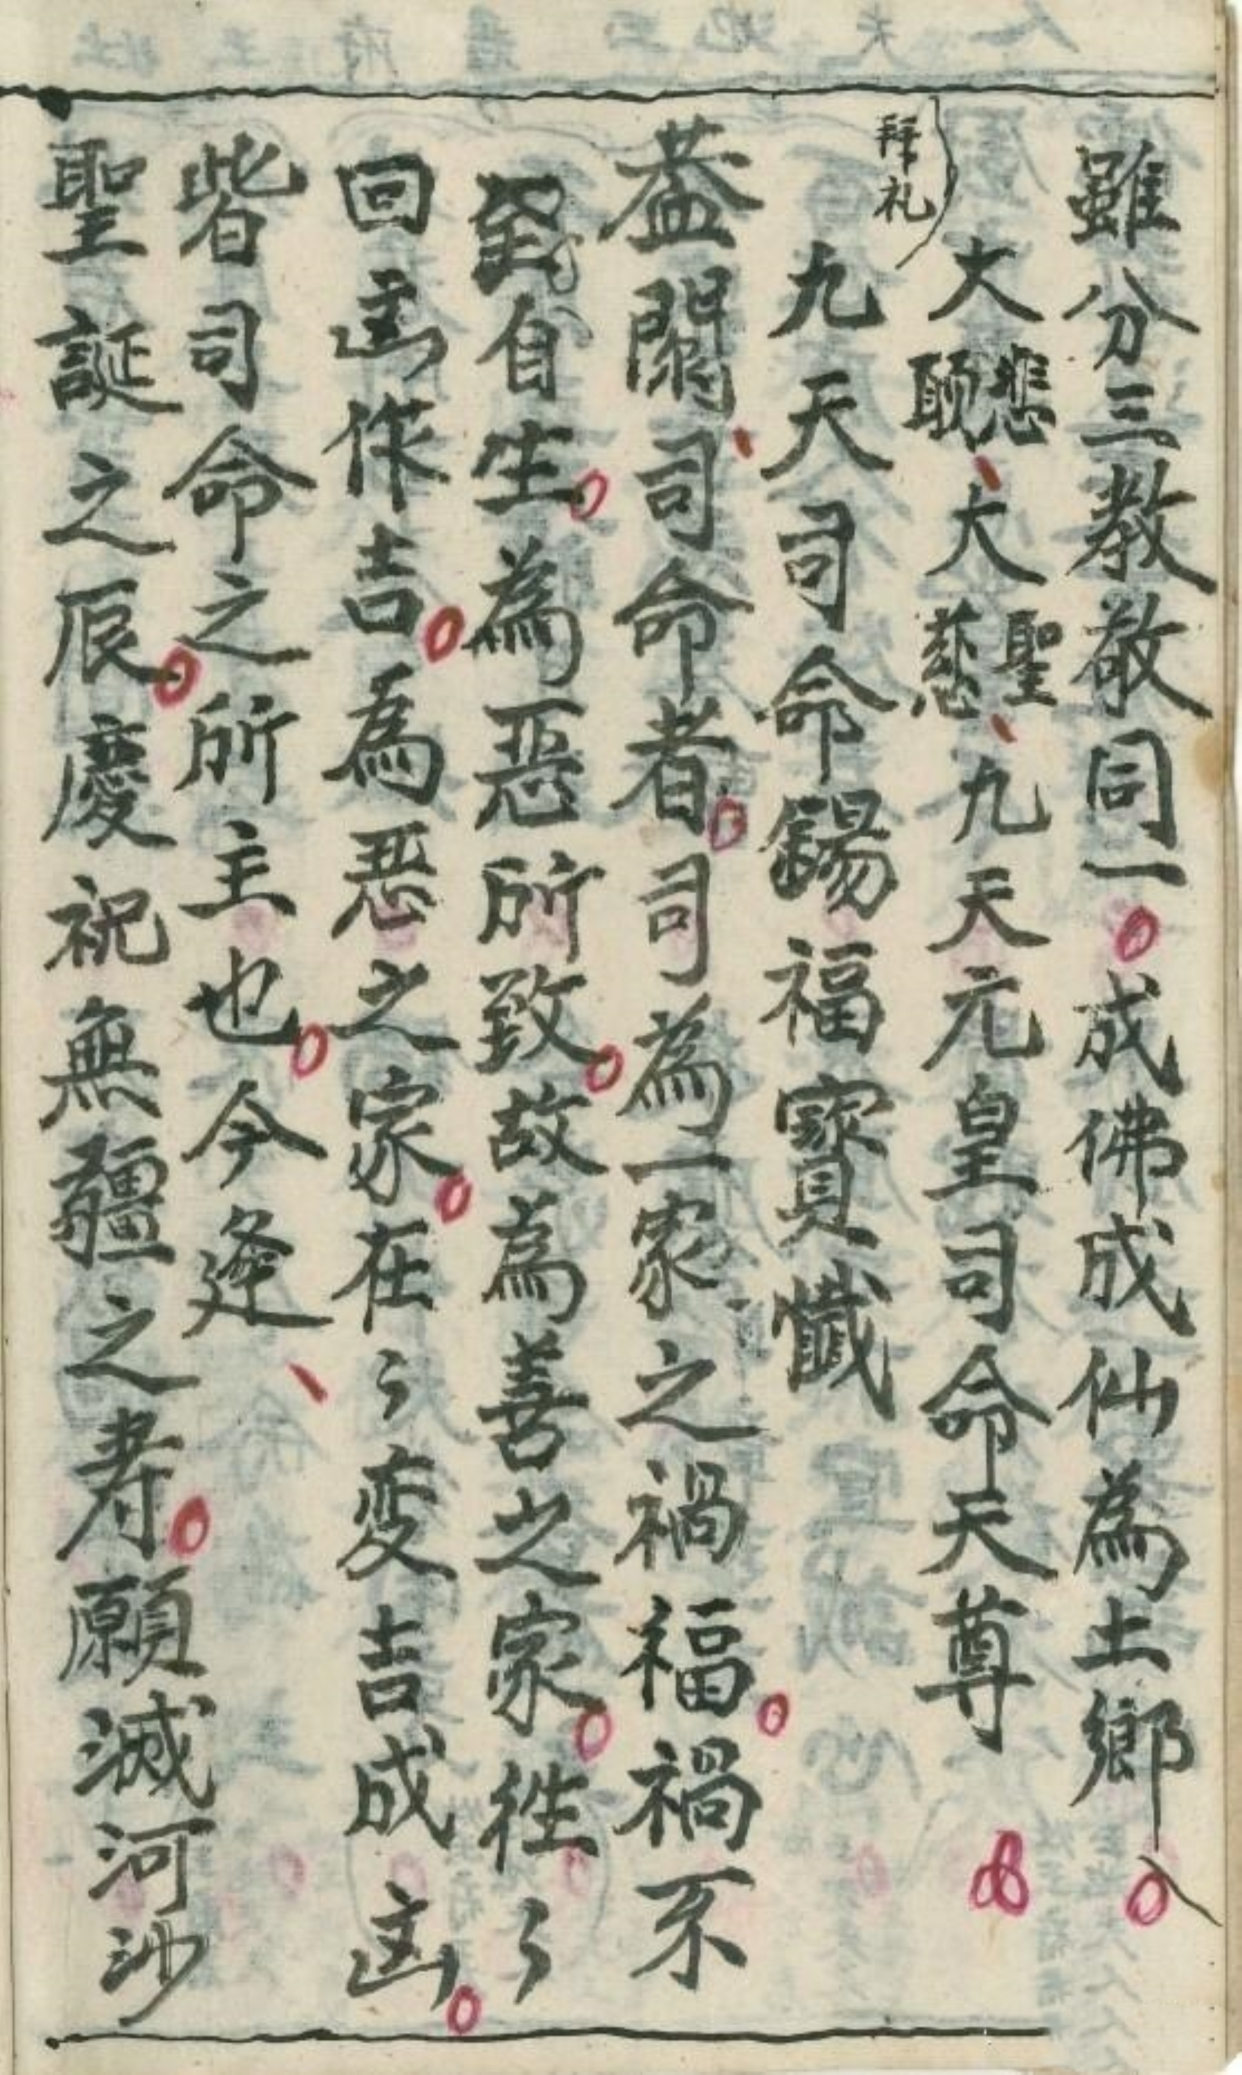 雖分三教敬同一成佛成仙為土鄉
大悲願大聖慈九天元皇司命天尊
拜礼
九天司命錫福寶懺
葢聞司命者司為一家之禍福禍不
自生為惡所致故為善之家徃〻
回凶作吉為恶之家在〻変吉成凶
皆司命之所主也今逢
聖誕之辰慶祝無疆之寿願滅河沙